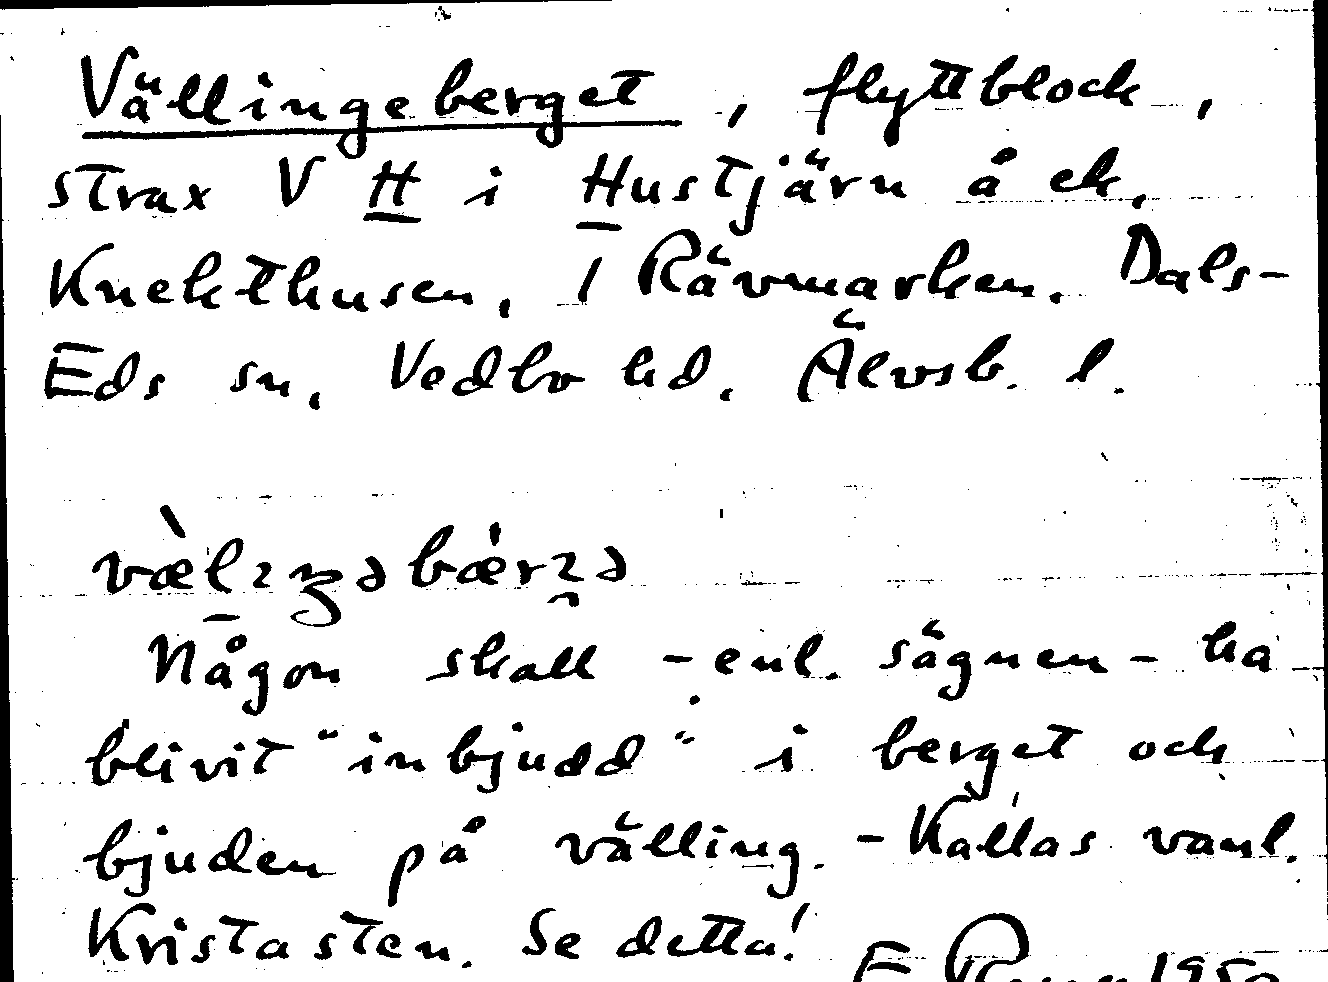 Vällingeberget, flyttblock,
strax V H i Hustjärn å ek.
Knekthusen, i Rävmarken. Dals-
Eds sn, Vedbo hd. Älvsb. l.
Någon skall - enl. sägnen - ha
blivit "inbjudd" i berget och
bjuden på välling. - Kallas vanl.
Kristasten. Se detta!